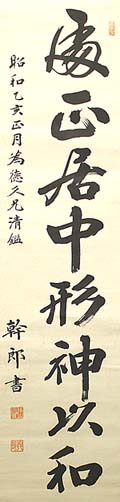 處正居中形神以和
昭和乙亥正月為德久兄清鑑
幹郎書